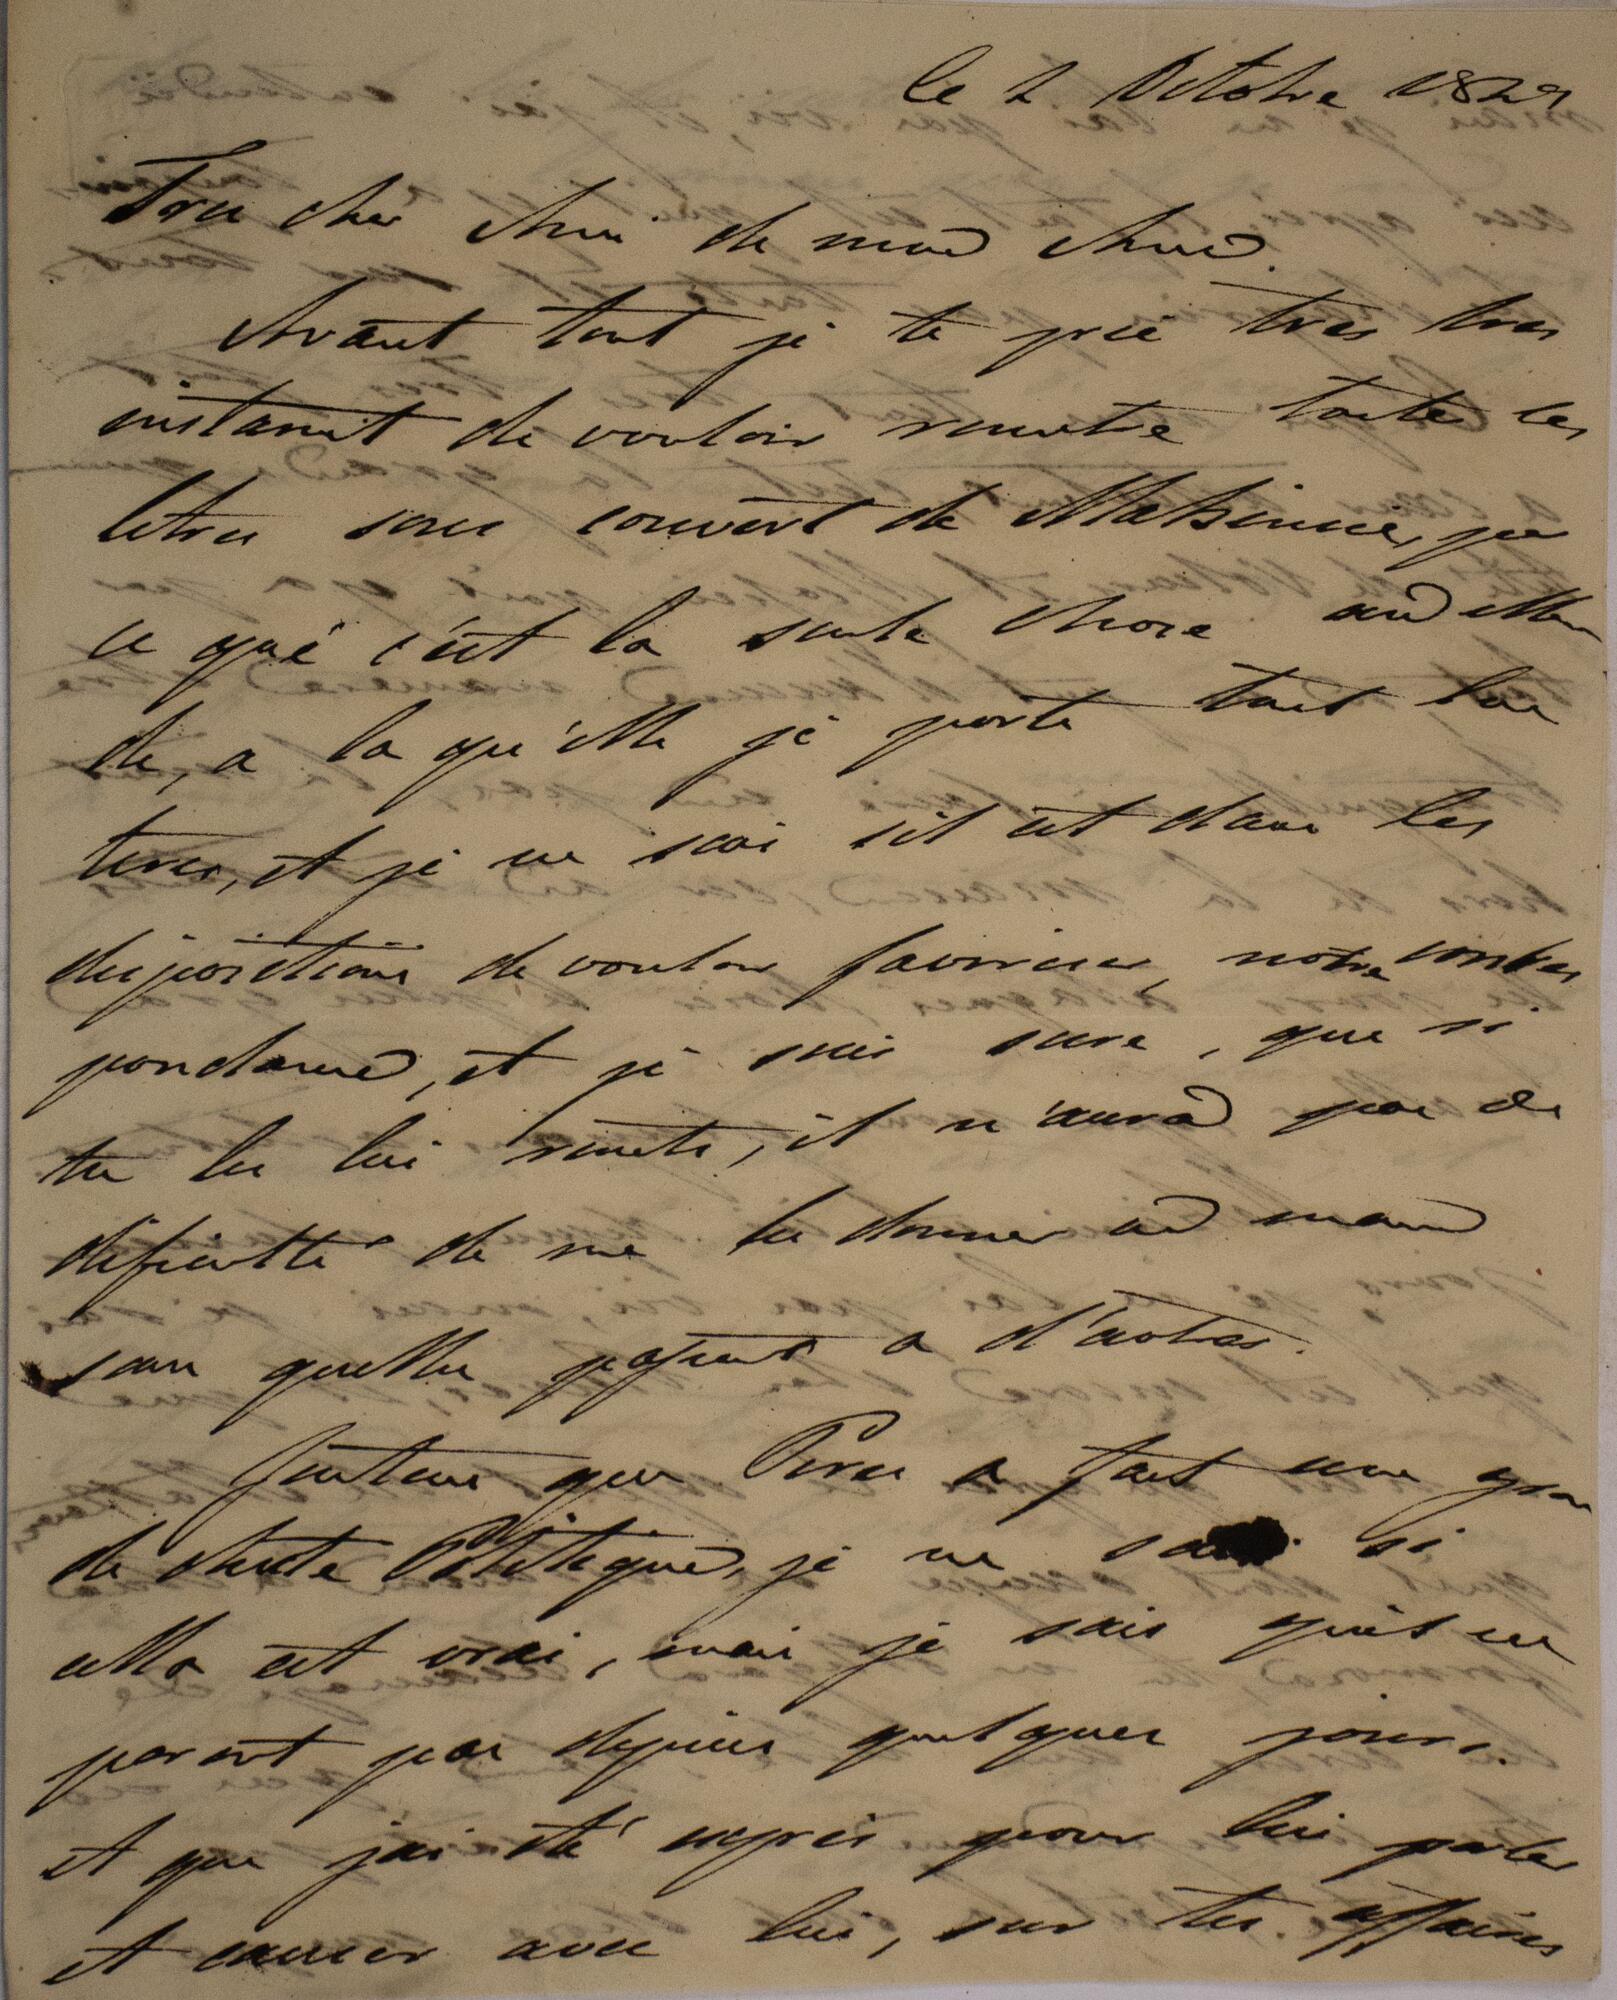 le 2 Octobre 1829
Tres cher Ami de mond Amed.
Avant tout je te prie tres tres
instamt de vouloir remetre toute les
letres sous couvert de Maksimie, par
ce que c'est la seule chose aud Mon
de, a la qu'elle je porte tout lan
teres, et je ne sai sil est dans les
disjositions de vouloir favoriser, notre corres
pondamed, et je suis sure, que si
tu les lui remets, il n'aurad pas de
dificulté de me les donner ad maind
sans quelles passent a d'autres.
J'entens que Peru a fait une gran
de chute Politiqued, je ne sais si
ella est vrai, mais je sais quil ne
parait pas depuis quelques jours.
et que jai été expres pour lui parler
et causer avec lui, sur tes affaires